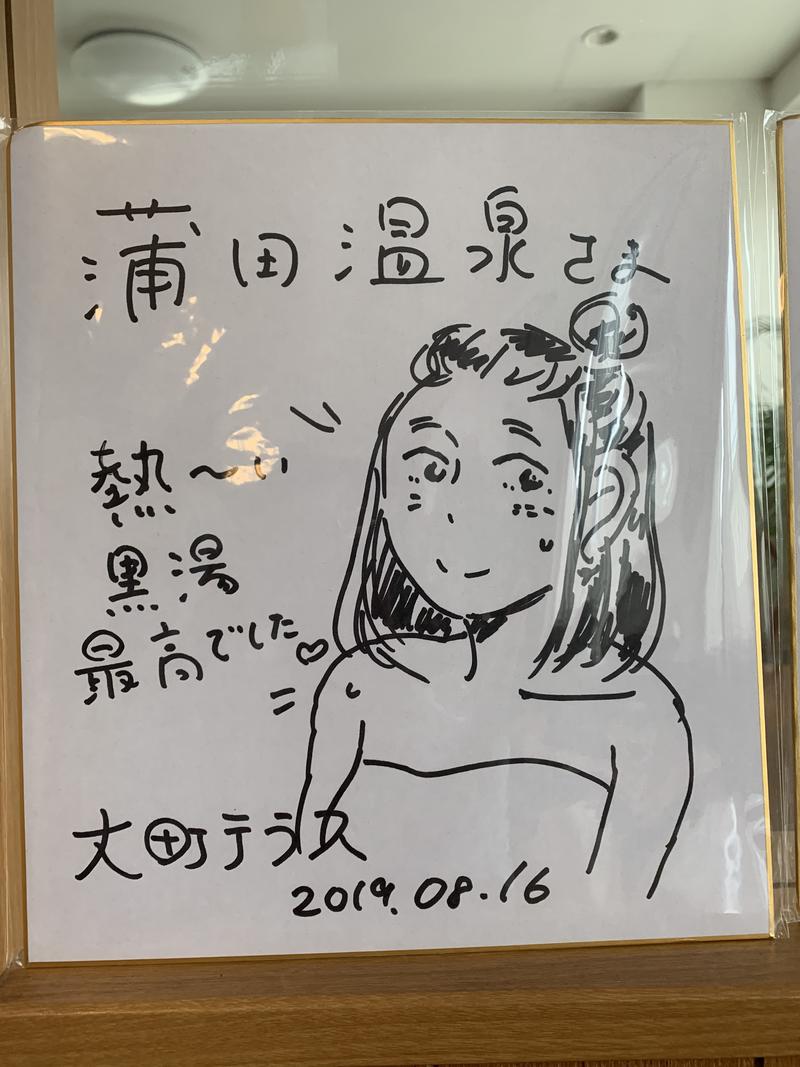 蒲田温泉さま
熱〜い
黒湯
最高でした♡
大町テラス
2019.08.16